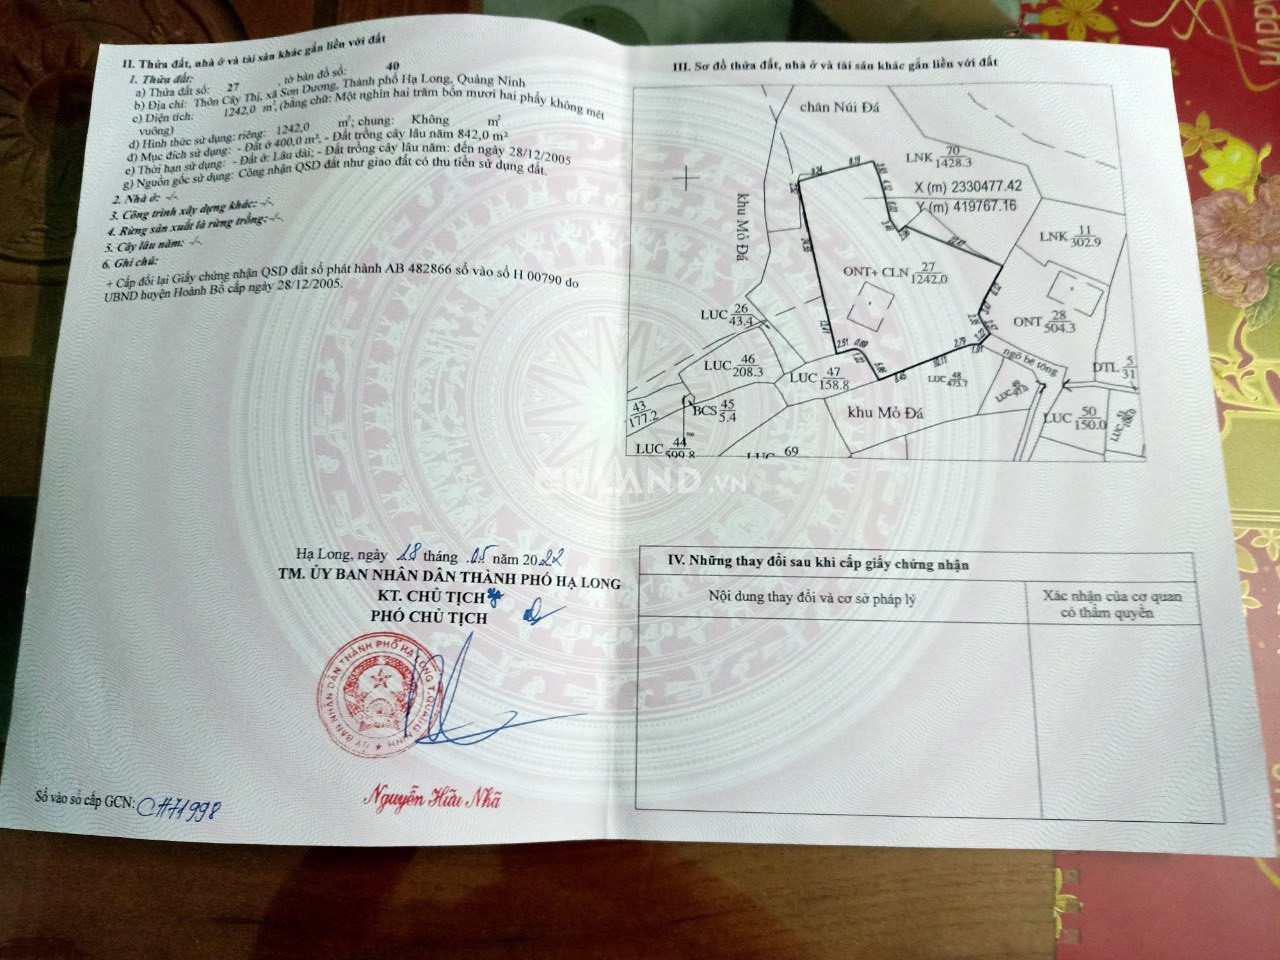 II. Thửa đất, nhà ở và tài sản khác gắn liền với đất
1. Thửa đất:
a) Thửa đất số: 27 , tờ bản đồ số: 40
b) Địa chỉ: Thôn Cây Thị, xã Sơn Dương, Thành phố Hạ Long, Quảng Ninh
c) Diện tích: 1242,0 m², (bằng chữ: Một nghìn hai trăm bốn mươi hai phẩy không mét
vuông)
d) Hình thức sử dụng: riêng: 1242,0 m²; chung: Không m²
đ) Mục đích sử dụng: - Đất ở 400,0 m², - Đất trồng cây lâu năm 842,0 m²
e) Thời hạn sử dụng: - Đất ở: Lâu dài; - Đất trồng cây lâu năm: đến ngày 28/12/2005
g) Nguồn gốc sử dụng: Công nhận QSD đất như giao đất có thu tiền sử dụng đất.
2. Nhà ở: -/-
3. Công trình xây dựng khác: -/-
4. Rừng sản xuất là rừng trồng: -/-
5. Cây lâu năm: -/-
6. Ghi chú:
+ Cấp đổi lại Giấy chứng nhận QSD đất số phát hành AB 482866 số vào sổ H 00790 do
UBND huyện Hoành Bồ cấp ngày 28/12/2005.
Hạ Long, ngày 18 tháng 05 năm 2022
TM. ỦY BAN NHÂN DÂN THÀNH PHỐ HẠ LONG
KT. CHỦ TỊCH
PHÓ CHỦ TỊCH
ỦY BAN NHÂN DÂN THÀNH PHỐ HẠ LONG T. QUẢNG NINH
Nguyễn Hữu Nhã
Số vào sổ cấp GCN: CH71998
III. Sơ đồ thửa đất, nhà ở và tài sản khác gắn liền với đất
chân Núi Đá
LNK 70 1428.3
X (m) 2330477.42
Y (m) 419767.16
khu Mỏ Đá
LNK 11 302.9
ONT+ CLN 27 1242.0
LUC 26 43.4
ONT 28 504.3
LUC 46 208.3
LUC 47 158.8
LUC 48 473.7
ngõ bê tông
DTL 5 31
43 177.2
BCS 45 5.4
khu Mỏ Đá
LUC 50 150.0
LUC 44 599.8
LUC 69
GULAND.VN
IV. Những thay đổi sau khi cấp giấy chứng nhận
Nội dung thay đổi và cơ sở pháp lý
Xác nhận của cơ quan
có thẩm quyền
HAPPY